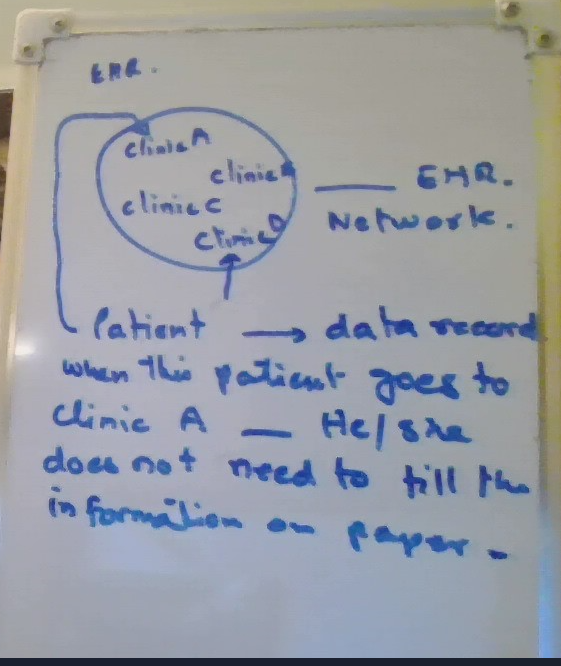 EHR.
clinic A
clinic
clinic C
clinic D
EHR.
Network.
Patient → data record
when this patient goes to
clinic A — He/she
does not need to fill the
information on paper.